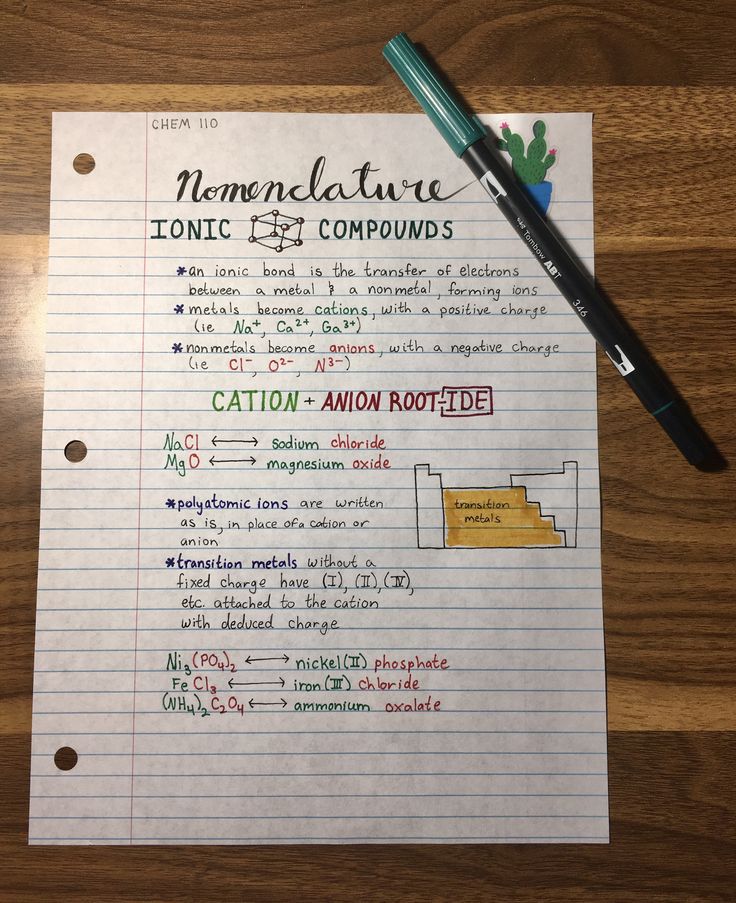 CHEM 110
Nomenclature
IONIC COMPOUNDS
*an ionic bond is the transfer of electrons
between a metal & a nonmetal, forming ions
*metals become cations, with a positive charge
(ie Na⁺, Ca²⁺, Ga³⁺)
*nonmetals become anions, with a negative charge
(ie Cl⁻, O²⁻, N³⁻)
CATION + ANION ROOT-IDE
NaCl ⟷ sodium chloride
MgO ⟷ magnesium oxide
*polyatomic ions are written
as is, in place of a cation or
anion
transition
metals
*transition metals without a
fixed charge have (I), (II), (IV),
etc. attached to the cation
with deduced charge
Ni₃(PO₄)₂ ⟷ nickel(II) phosphate
FeCl₃ ⟷ iron(III) chloride
(NH₄)₂C₂O₄ ⟷ ammonium oxalate
Tombow ABT
346